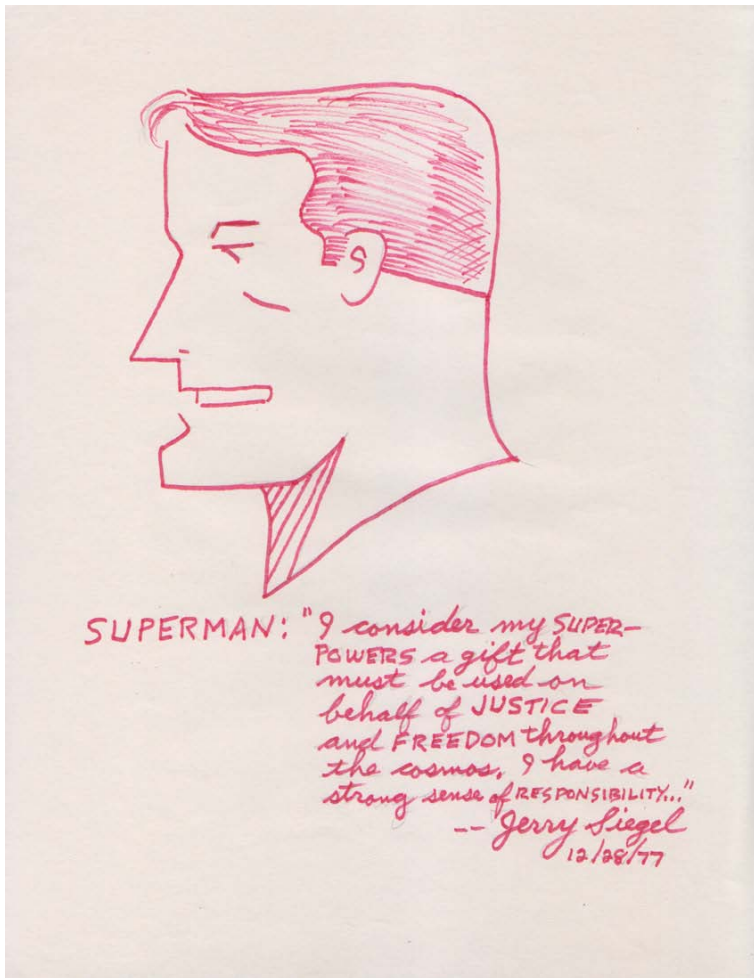 SUPERMAN: "I consider my SUPER-
POWERS a gift that
must be used on
behalf of JUSTICE
and FREEDOM throughout
the cosmos. I have a
strong sense of RESPONSIBILITY..."
-- Jerry Siegel
12/28/77